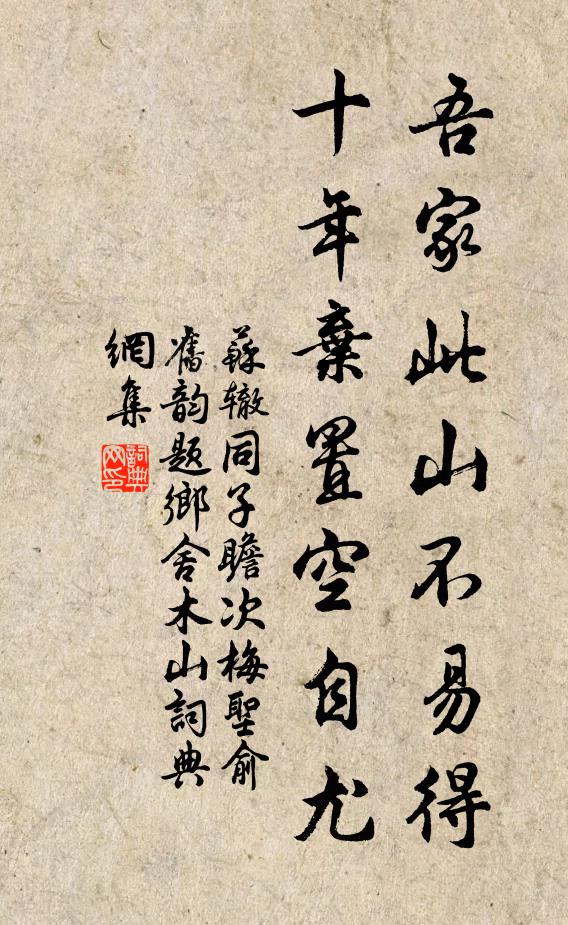 吾家此山不易得
十年棄置空自尤
蘇轍同子瞻次梅聖俞
舊韵題鄉舍木山詞典
網集
詞典網印